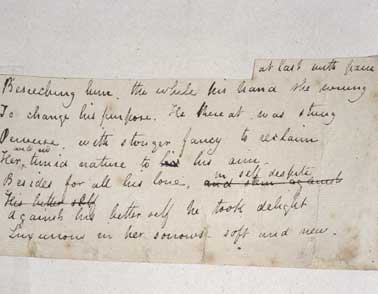 at last with pain
Beseeching him, the while his hand she wrung
To change his purpose. He thereat was stung
Perverse, with stronger fancy to reclaim
Her timid nature to his his aim.
in self despite
Besides for all his love, and stun against
His better self
Against his better self he took delight
Luxurious in her sorrows soft and new.